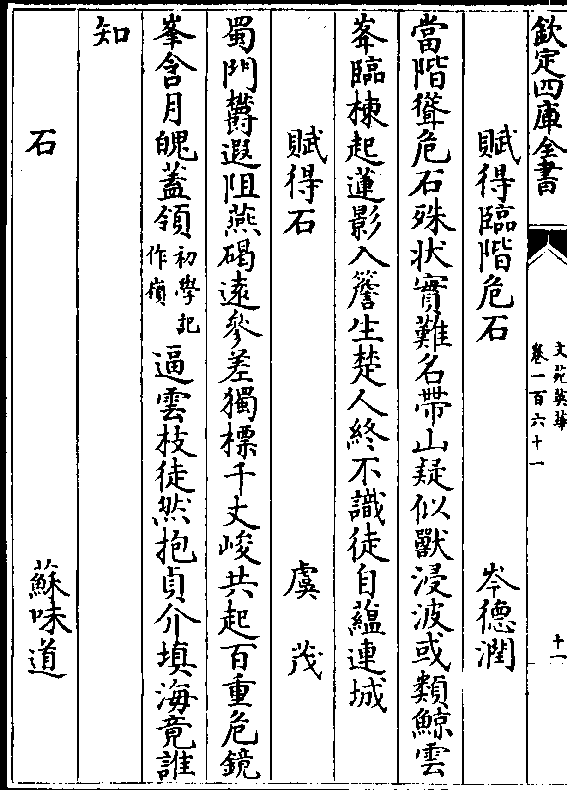 欽定四庫全書
文苑英華
卷一百六十一
十一
賦得臨階危石 岑德潤
當階聳危石殊状實難名帶山疑似獸浸波或類鯨雲
峯臨棟起蓮影入簷生楚人終不識徒自蘊連城
賦得石 虞茂
蜀門欝遐阻燕碣遠參差獨標千丈峻共起百重危鏡
峯含月魄葢領初學記作嶺逼雲枝徒然抱貞介填海竟誰
知
石 蘇味道